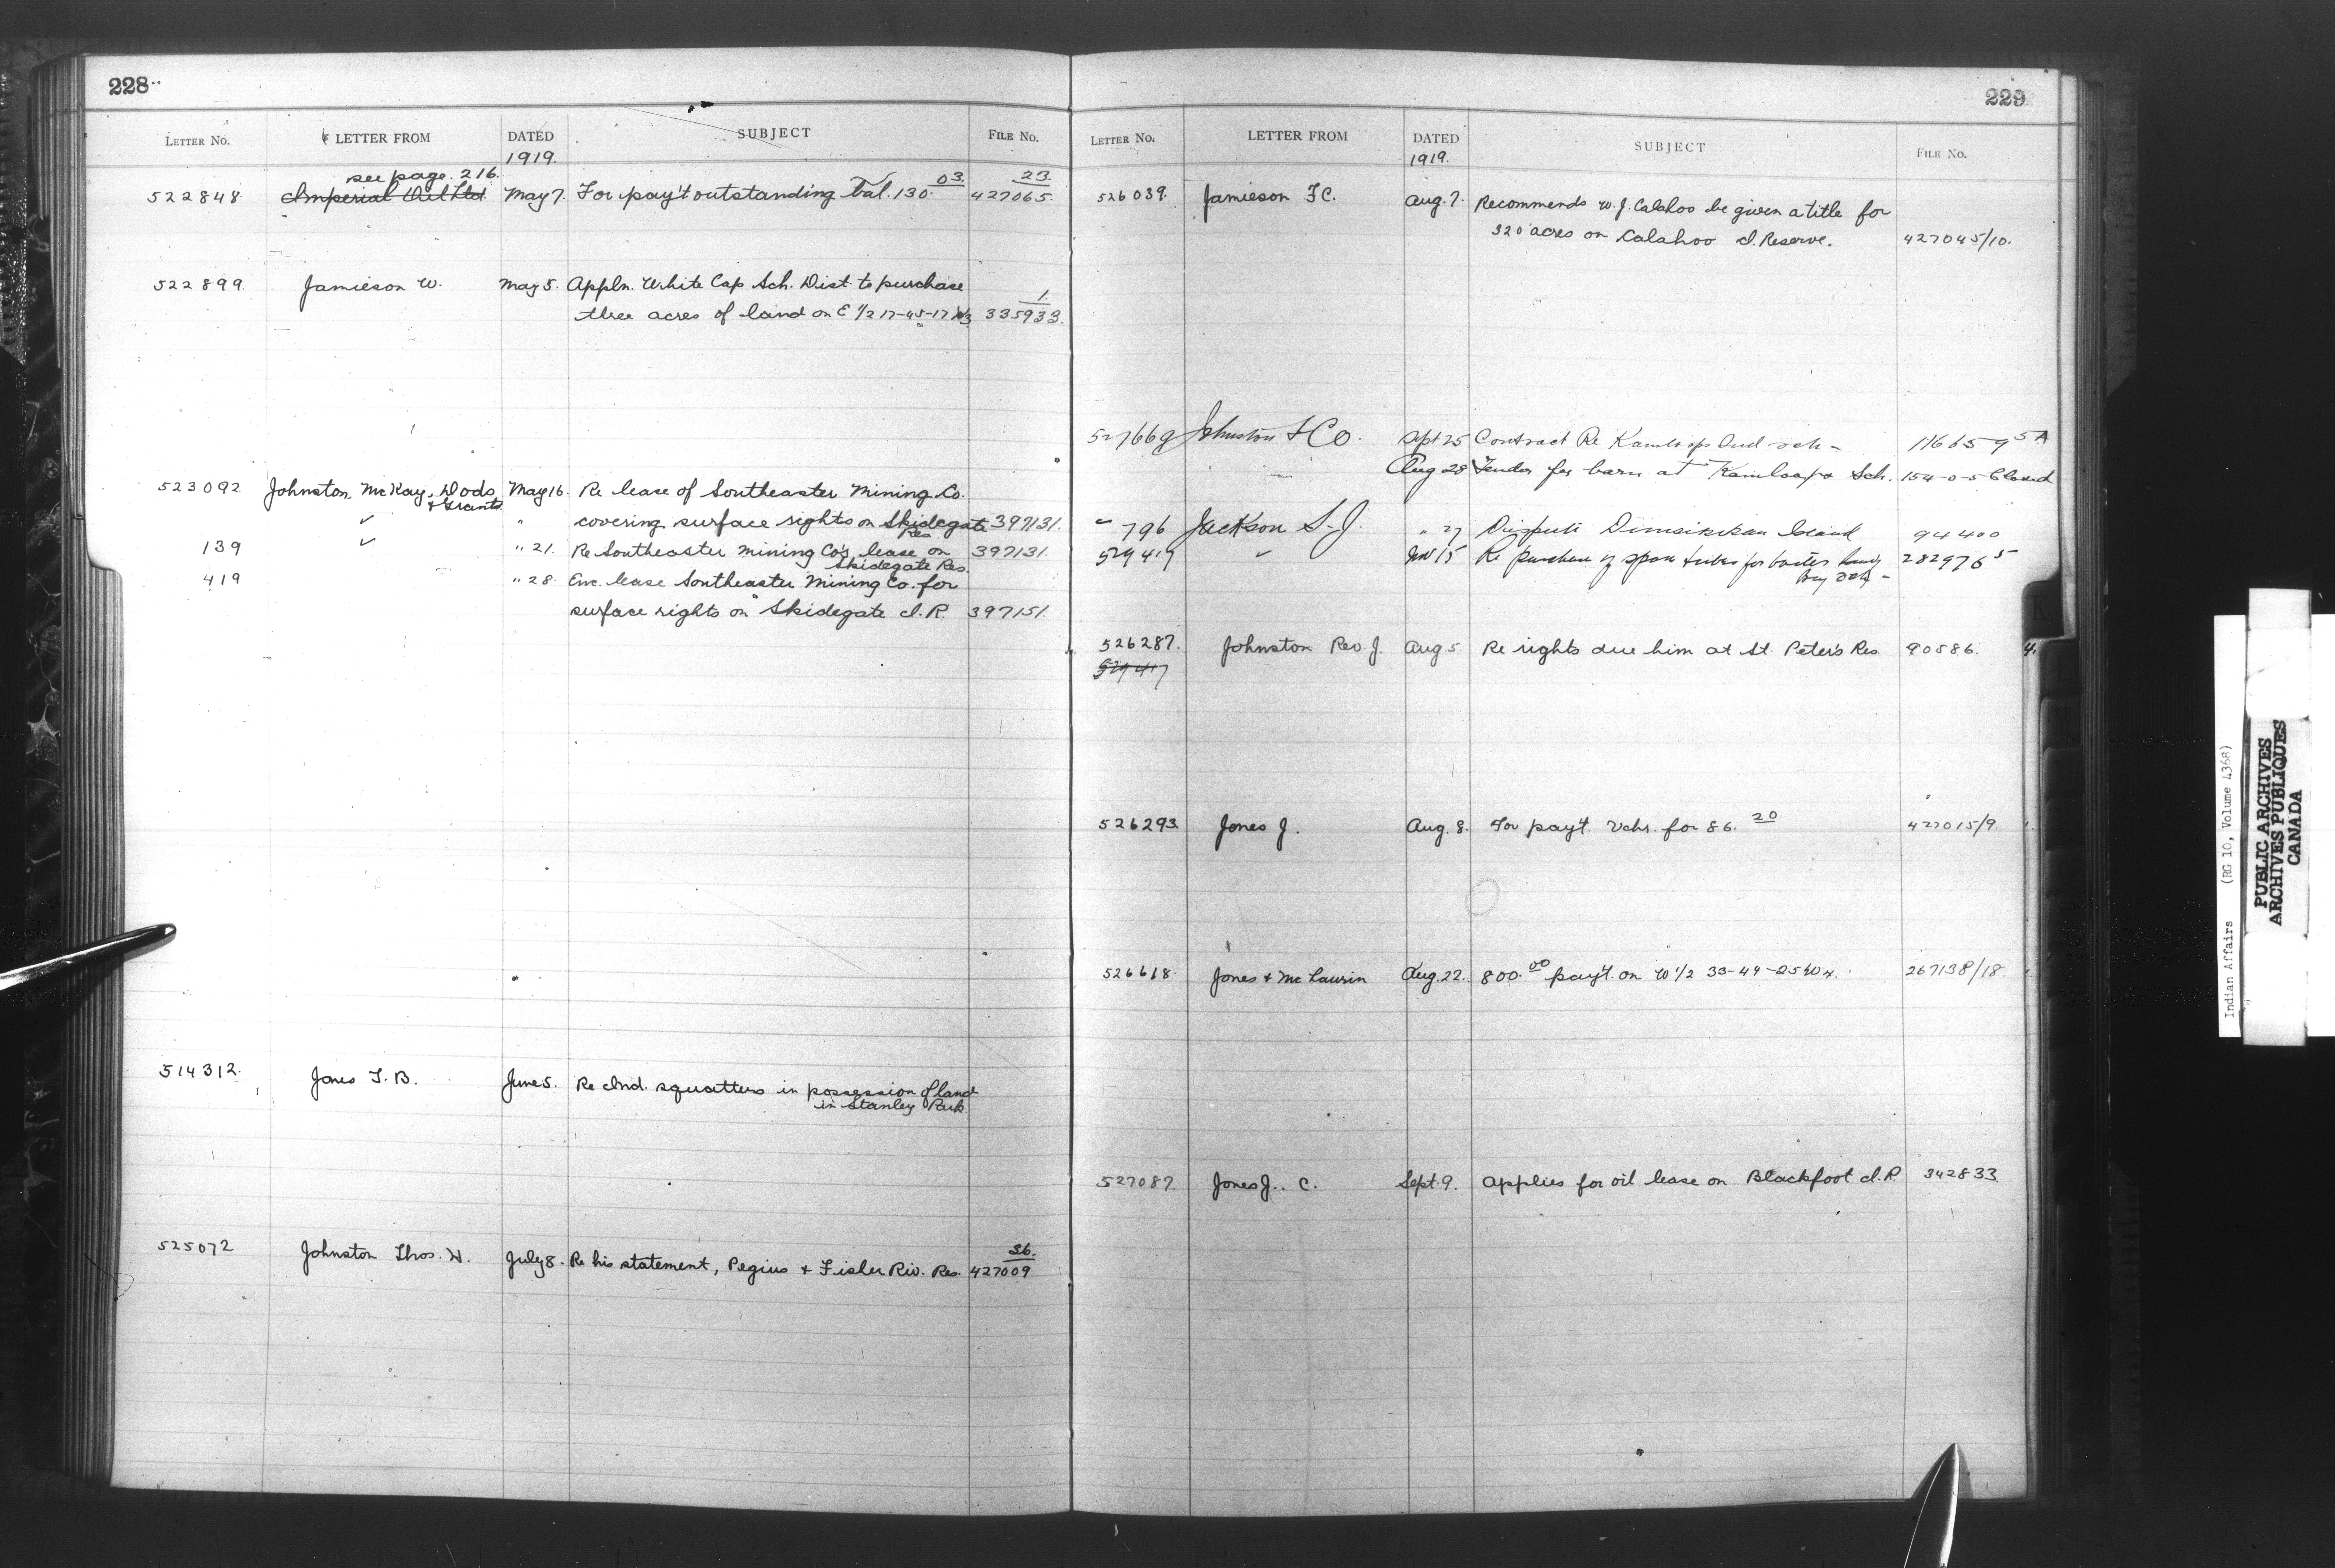 228
LETTER No. LETTER FROM DATED SUBJECT FILE No.
1919.
see page. 216.
522848. Imperial Oil Ltd. May 7. For pay't outstanding bal. 130.03. 23. 427065.
522899. Jamieson W. May 5. Appln. White Cap Sch. Dist. to purchase
three acres of land on E 1/2 17-45-17 W3 1. 335933.
523092 Johnston, McKay, Dods & Grant May 16. Re lease of Southeaster Mining Co.
✓ " covering surface rights on Skidegate Res. 397131.
139 ✓ " 21. Re Southeaster Mining Co's lease on Skidegate Res. 397131.
419 " 28 Enc. lease Southeaster Mining Co. for
surface rights on Skidegate I.R. 397151.
514312. Jones T.B. June 5. Re Ind. squatters in possession of land
in Stanley Park
525072 Johnston Thos. H. July 8. Re his statement, Pegius & Fisher Riv. Res. 36. 427009
229
LETTER No. LETTER FROM DATED SUBJECT FILE No.
1919.
526039. Jamieson F.C. Aug. 7. Recommends W. J. Calahoo be given a title for
320 acres on Calahoo I. Reserve. 427045/10.
527669 Johnston & Co. Sept 25 Contract Re Kamloops Ind sch - 116659 5A
Aug 28 Tender for barn at Kamloops Sch. 154-0-5 Closed
" 796 Jackson S. J. " 27 Island 94400
529417 " Nov 15 Re purchase of tubes for 282976 5
526287. Johnston Rev. J. Aug 5. Re rights due him at St. Peter's Res. 90586. 4.
529417
526293 Jones J. Aug. 8. For pay't. Vchr. for 86.20 427015/9
526618. Jones & McLaurin Aug. 22. 800.00 pay't. on W 1/2 33-44-25 W4. 267138/18.
527087. Jones J. C. Sept. 9. Applies for oil lease on Blackfoot I.R. 342833
K
Indian Affairs (RG 10, Volume 4368)
PUBLIC ARCHIVES
ARCHIVES PUBLIQUES
CANADA